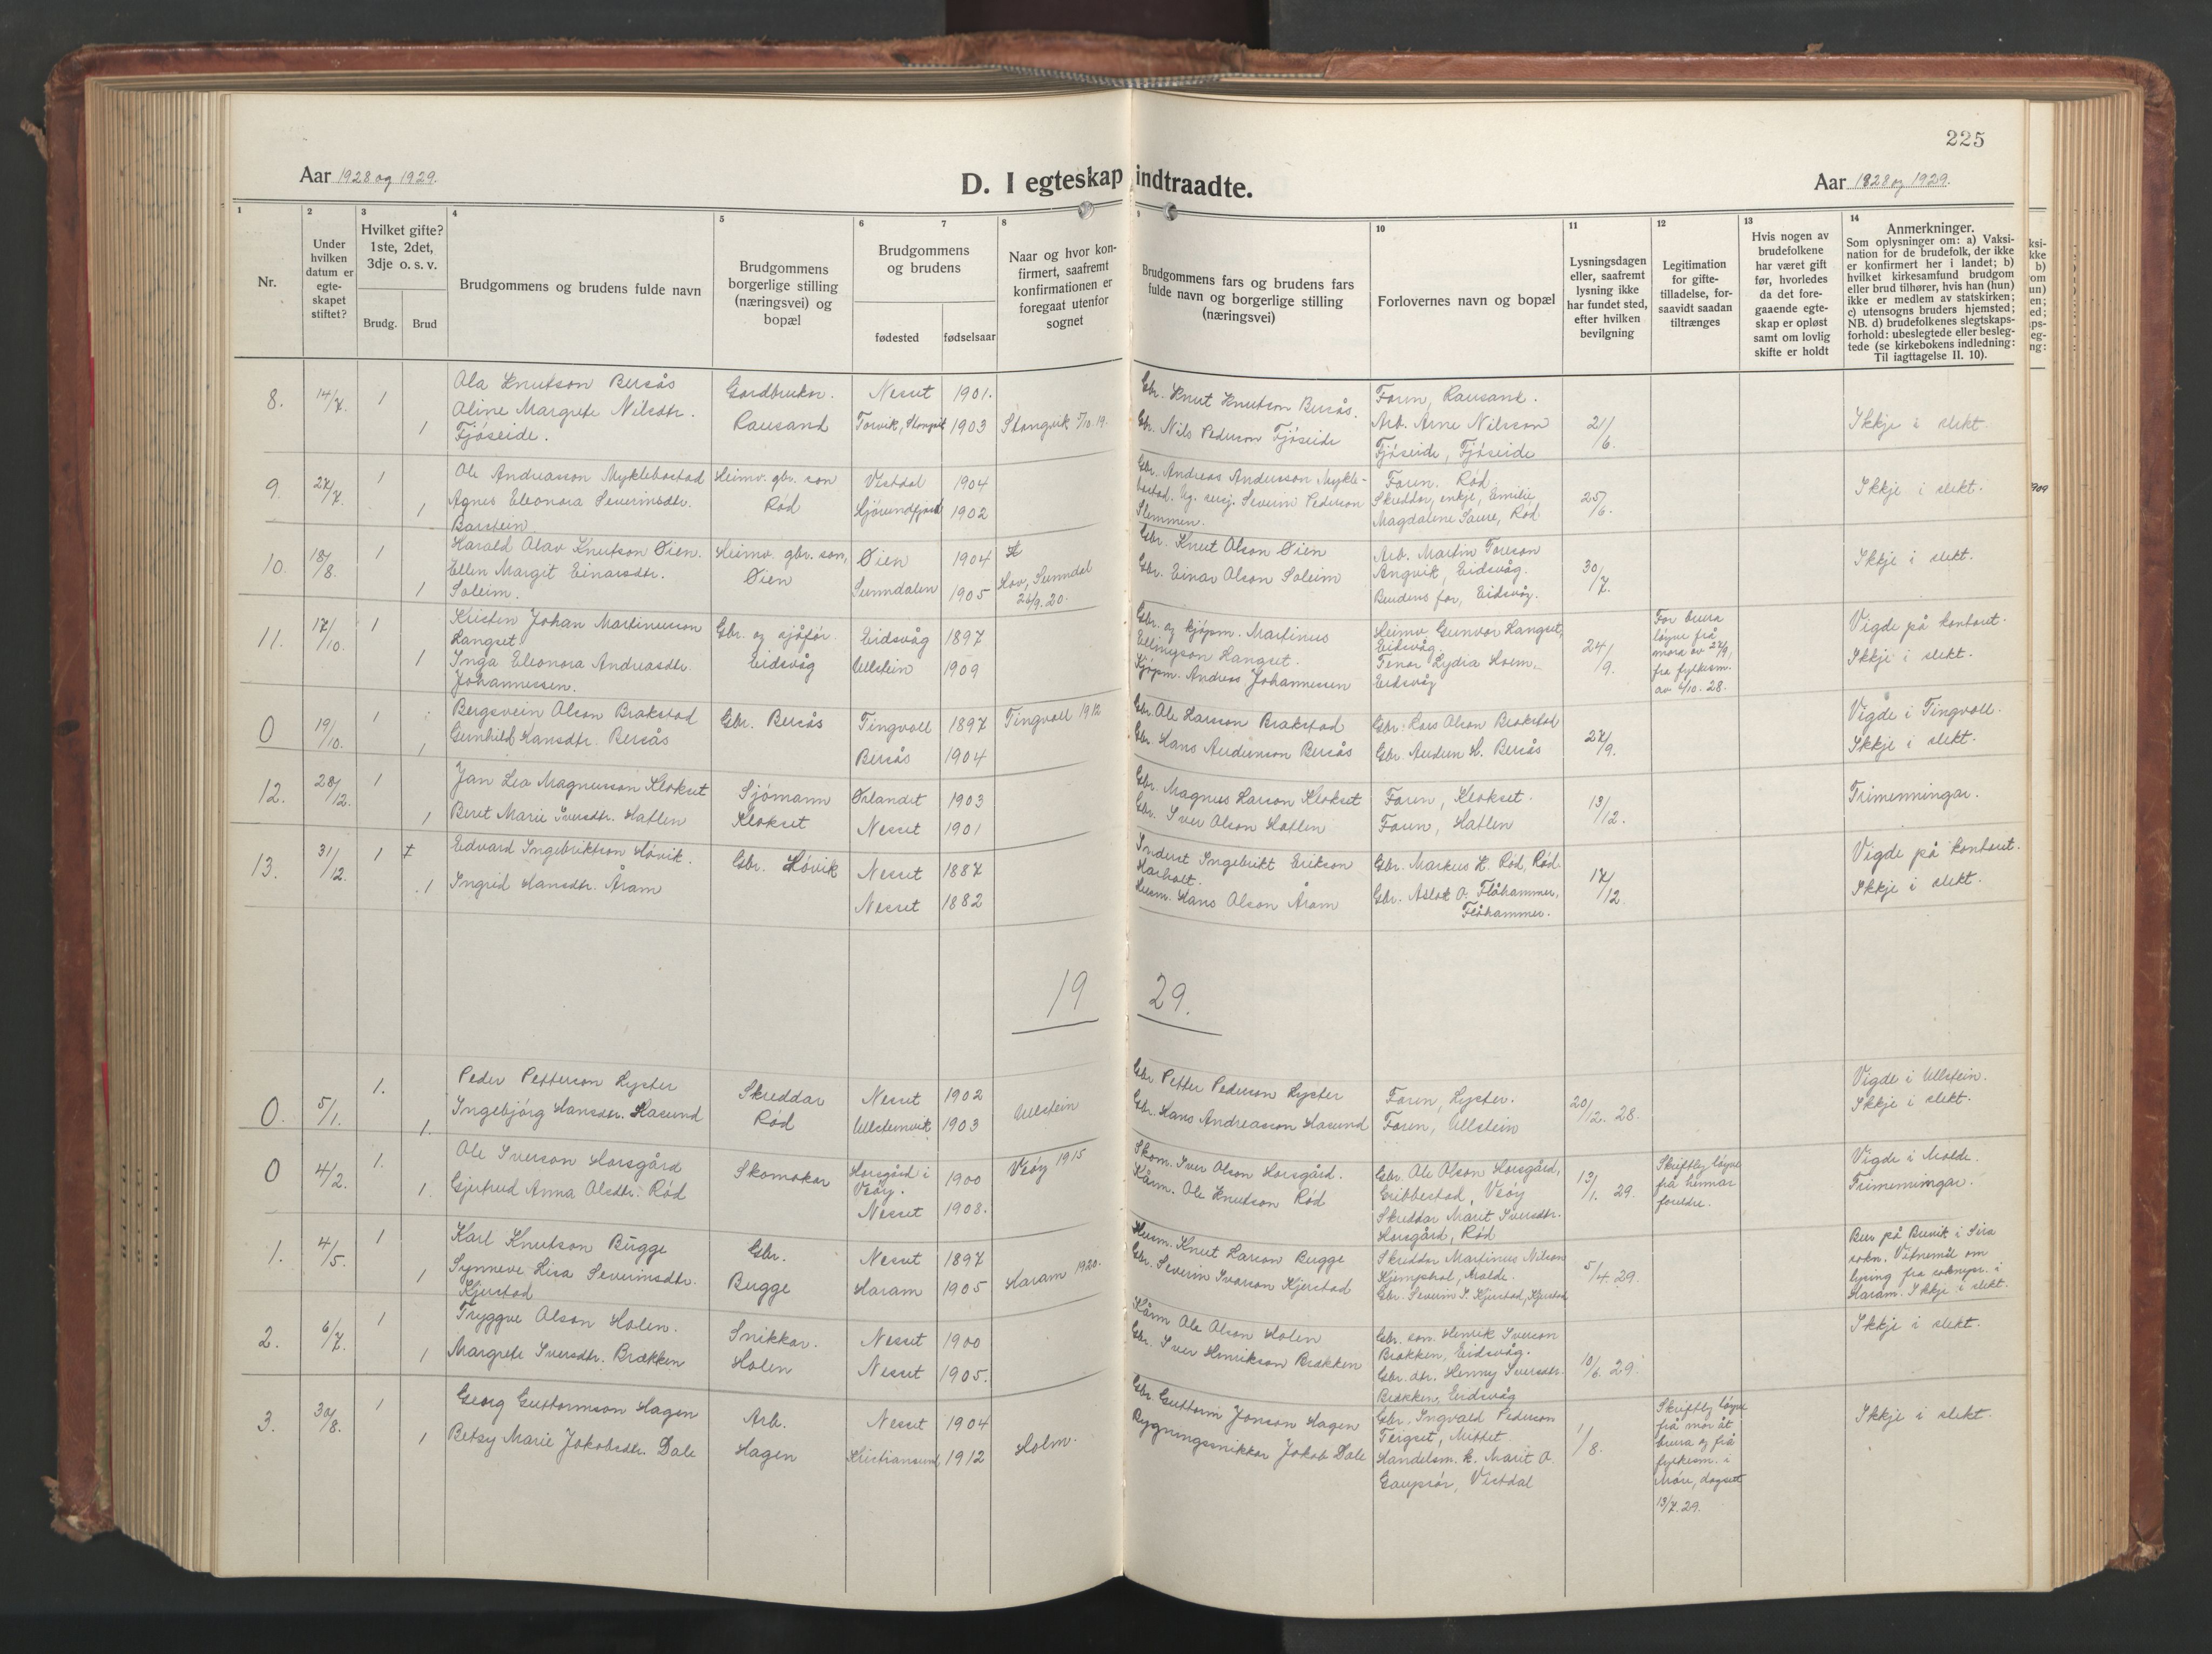 225
Aar 1928 og 1929.
D. I egteskap indtraadte.
Aar 1928 og 1929.
1
2
3
4
5
6
7
8
9
10
11
12
13
14
Nr.
Under hvilken datum er egte- skapet stiftet?
Hvilket gifte? 1ste, 2det, 3dje o. s. v.
Brudg.
Brud
Brudgommens og brudens fulde navn
Brudgommens borgerlige stilling (næringsvei) og bopæl
Brudgommens og brudens
fødested
fødselsaar
Naar og hvor kon- firmert, saafremt konfirmationen er foregaat utenfor sognet
Brudgommens fars og brudens fars fulde navn og borgerlige stilling (næringsvei)
Forlovernes navn og bopæl
Lysningsdagen eller, saafremt lysning ikke har fundet sted, efter hvilken bevilgning
Legitimation for gifte- tilladelse, for- saavidt saadan tiltrænges
Hvis nogen av brudefolkene har været gift før, hvorledes da det fore- gaaende egte- skap er opløst samt om lovlig skifte er holdt
Anmerkninger.
Som oplysninger om: a) Vaksi- nation for de brudefolk, der ikke er konfirmert her i landet; b) hvilket kirkesamfund brudgom eller brud tilhører, hvis han (hun) ikke er medlem av statskirken; c) utensogns bruders hjemsted; NB. d) brudefolkenes slegtskaps- forhold: ubeslegtede eller besleg- tede (se kirkebokens indledning: Til iagttagelse II. 10).
8. 14/7. 1 Ola Knutson Bersås Gardbrukar. Nesset 1901. Gbr. Knut Knutson Bersås. Faren, Rausand.
1 Aline Margrete Nilsdtr. Fjöseide. Rausand Torvik, Stangvik 1903 Stangvik 5/10.19. Gbr. Nils Pederson Fjöseide Arb. Arne Nilsson Fjöseide, Fjöseide 21/6. Ikkje i slekt.
9. 27/7. 1 Ole Andreasson Myklebostad Heimv. gbr. son Vistdal 1904 Gbr. Andreas Andersson Myklebostad. Faren. Rød
1 Agnes Eleonora Severinsdtr. Barstein Rød Hjörundfjord 1902 Severin Pederson Slemmen. Skreddar, enkje, Emilie Magdalene Saure, Rød. 25/6. Ikkje i slekt.
10. 18/8. 1 Harald Olav Knutson Øien. Heimv. gbr. son, Øien 1904 Gbr. Knut Olson Øien Arb. Martin Toreson Angvik, Eidsvåg.
1 Ellen Margit Einarsdtr. Soleim. Øien Sunndalen 1905 Hov, Sunndal 26/9.20. Gbr. Einar Olson Soleim Brudens far, Eidsvåg. 30/7. Ikkje i slekt.
11. 17/10. 1 Kristen Johan Martinusson Langset. Gbr. og sjåfør. Eidsvåg 1897 Gbr. og kjøpm. Martinus Ellingson Langset. Heimv. Gunvor Langset, Eidsvåg.
1 Inga Eleonora Andreasdtr. Johannessen. Eidsvåg Ullstein 1909 Kjøpm. Andreas Johannessen Tenar Lydia Hoem, Eidsvåg 24/9. For brura löyve frå mora av 27/9, fra fylkesm. av 6/10. 28. Vigde på kontoret. Ikkje i slekt.
0 19/10. 1 Bergsvein Olson Brakstad Gbr. Bersås Tingvoll 1897 Tingvoll 1912 Gbr. Ole Larsson Brakstad Gbr. Lars Olson Brakstad
1 Gunhild Hansdtr. Bersås Bersås 1904 Gbr. Hans Audunson Bersås Gbr. Audun H. Bersås 27/9. Vigde i Tingvoll. Ikkje i slekt.
12. 28/12. 1 Jan Leo Magnusson Klokset Sjömann Ørlandet 1903 Gbr. Magnus Larson Klokset Faren, Klokset.
1 Beret Marie Iversdtr. Hatlen Klokset Nesset 1901 Gbr. Iver Olson Hatlen Faren, Hatlen 13/12. Trimenningar.
13. 31/12. 1 Edvard Ingebriktson Hövik. Gbr. Hövik Nesset 1887 Inderst Ingebrikt Erikson Harholt. Gbr. Markus H. Rød, Rød.
1 Ingrid Hansdtr. Åram Nesset 1882 Husm. Hans Olson Åram Gbr. Aslak O. Flåhammer, Flåhammer. 17/12. Vigde på kontoret. Ikkje i slekt.
19 29.
0. 5/1. 1. Peder Petterson Lyster Skreddar Nesset 1902 Gbr Petter Pederson Lyster Faren, Lyster.
1. Ingebjörg Hansdtr. Hasund Rød Ullsteinvik 1903 Ullstein Gbr. Hans Andreasson Hasund Faren, Ullstein 20/12. 28. Vigde i Ullstein. Ikkje i slekt.
0 4/2. 1. Ole Iverson Horsgård Skomakar Horsgård i Veöy. 1900 Veöy 1915 Skom. Iver Olson Horsgård. Gbr. Ole Olson Horsgård, Gribbestad, Veöy
1. Gjertrud Anna Olsdtr. Rød Nesset 1908. Kårm. Ole Knutson Rød Skreddar Marit Iversdtr. Horsgård, Rød 13/1. 29. Skriftleg löyve frå hennar foreldre. Vigde i Molde. Trimenningar.
1. 4/5. 1 Karl Knutson Bugge Gbr. Nesset 1897 Husm. Knut Larson Bugge Skreddar Martinus Nilson Kjempshol, Molde.
1 Synneve Lisa Severinsdtr. Kjerstad Bugge Haram 1905 Haram 1920. Gbr. Severin Ivarson Kjerstad Gbr. Severin I. Kjerstad, Kjerstad 5/4. 29. Bur på Buvik i Sira sokn. Vitnemål om lysing fra soknepr. i Haram. Ikkje i slekt.
2. 6/7. 1 Tryggve Olson Holen. Snikkar. Nesset 1900 Kårm Ole Olson Holen Gbr. son. Henrik Iverson Brakken, Eidsvåg.
1 Margrete Iversdtr. Brækken Holen Nesset 1905. Gbr. Iver Henrikson Brækken Gbr. dtr. Henny Iversdtr. Brækken, Eidsvåg 10/6. 29. Ikkje i slekt.
3. 30/8. 1 Georg Guttormson Hagen Arb. Nesset 1904 Gbr Guttorm Jonson Hagen Gbr. Ingvald Pederson Tergset, Mittet.
1 Betsy Marie Jakobsdtr. Dale Hagen Kristiansund 1912 Holm. Bygningssnikkar Jakob Dale Handelsm. k. Marit O. Gauprör, Vistdal 1/8. Skriftleg löyve frå mor åt brura og frå fylkesm. i Möre, dagsett 13/7.29. Ikkje i slekt.